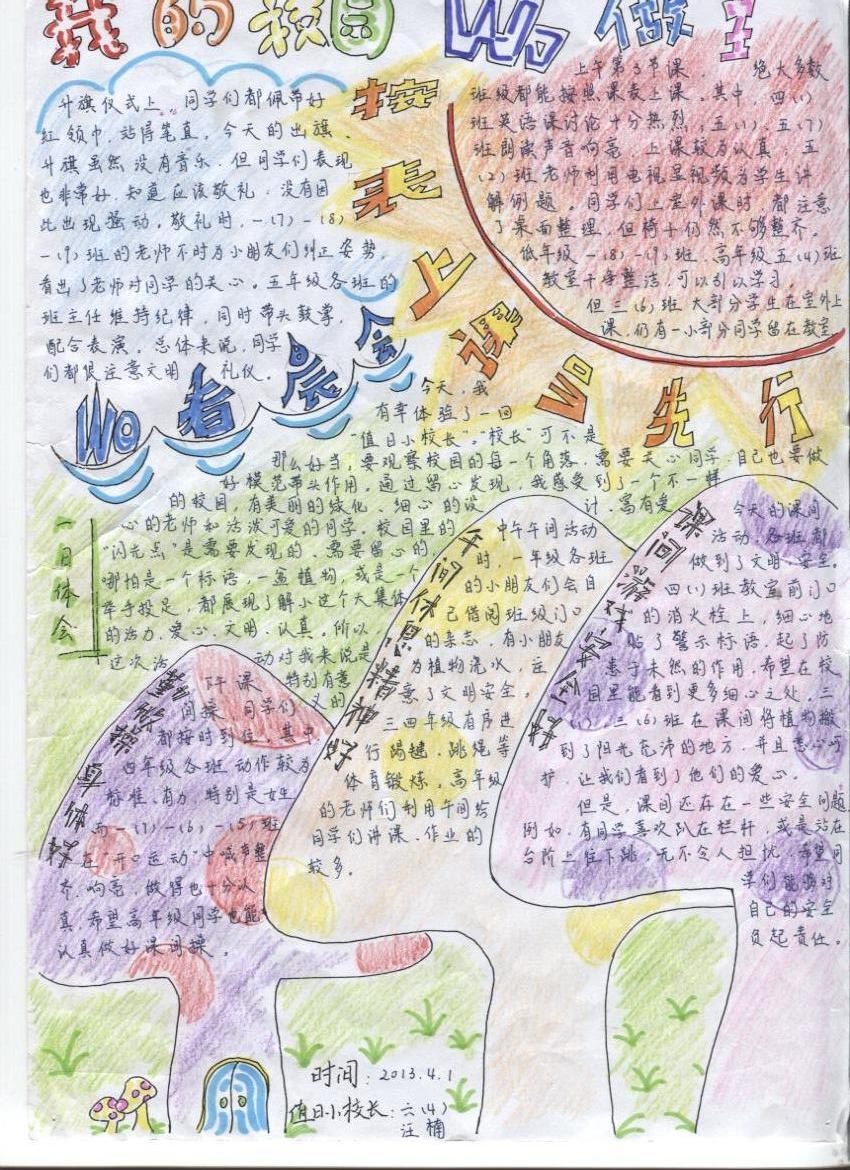 我的校园Wo做主
升旗仪式上,同学们都佩带好
红领巾,站得笔直。今天的出旗、
升旗虽然没有音乐,但同学们表现
也非常好,知道应该敬礼,没有因
此出现骚动。敬礼时,一(7)一(8)
一(9)班的老师不时为小朋友们纠正姿势,
看出了老师对同学的关心。五年级各班的
班主任维持纪律,同时带头鼓掌
配合表演。总体来说,同学
们都很注意文明礼仪。
Wo看晨会
按表上课Wo先行
上午第3节课,绝大多数
班级都能按照课表上课。其中,四(1)
班英语课讨论十分热烈;五(1)、五(7)
班朗读声音响亮,上课较为认真;五
(2)班老师利用电视显视频为学生讲
解例题。同学们上室外课时,都注意
了桌面整理,但椅子仍然不够整齐。
低年级一(8)一(9)班,高年级五(4)班
教室干净整洁,可以引以学习。
但三(6)班大部分学生在室外上
课,仍有一小部分同学留在教室
一日体会
今天,我
有幸体验了一回
“值日小校长”。“校长”可不是
那么好当,要观察校园的每一个角落,需要关心同学,自己也要做
好模范带头作用。通过留心发现,我感受到了一个不一样
的校园,有美丽的绿化、细心的设计,富有爱
心的老师和活泼可爱的同学。校园里的
“闪光点”是需要发现的,需要留心的,
哪怕是一个标语,一盆植物,或是一个
举手投足,都展现了解小这个大集体
的活力、爱心、文明、认真。所以,
这次活动对我来说是
特别有意
义的
勤做操 身体棒
下课
间操,同学们
都按时到位。其中
四年级各班动作较为
标准、有力,特别是女生
而一(7)一(6)一(5)班
在“开心运动”中喊节整
齐、响亮,做得也十分认
真,希望高年级同学也能
认真做好课间操。
午间休息精神好
中午午间活动
时,一年级各班
的小朋友们会自
己借阅班级门口
的杂志,有小朋友
为植物浇水,注
意了文明安全,
三四年级有序进
行踢毽、跳绳等
体育锻炼。高年级
的老师们利用午间给
同学们讲课、作业的
较多。
课间游戏安全我
今天的课间
活动,各班都
做到了文明、安全。
四(1)班教室前门口
的消火栓上,细心地
贴了警示标语,起了防
患于未然的作用,希望在校
园里能看到更多细心之处。三
三(6)班在课间将植物搬
到了阳光充沛的地方,并且悉心呵
护,让我们看到了他们的爱心。
但是,课间还存在一些安全问题
例如,有同学喜欢趴在栏杆,或是站在
台阶上往下跳,无不令人担忧,希望同
学们能够对
自己的安全
负起责任。
时间:2013.4.1
值日小校长:六(4)
汪楠